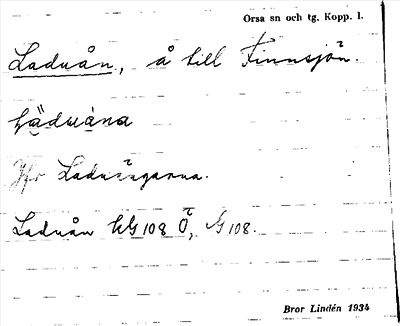 Orsa sn och tg, Kopp. l.
Laduån, å till Finnsjön.
Jfr Laduängarna.
Laduån 108 Ö, 108.
Bror Lindén 1934